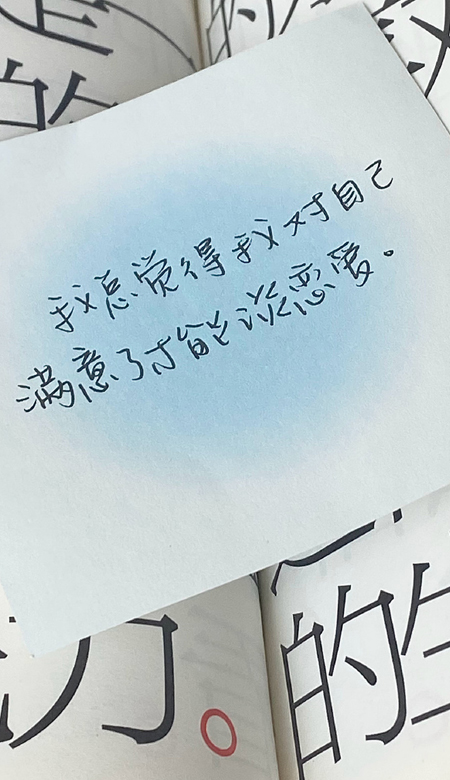 的
我总觉得我对自己
满意了才能谈恋爱。
力。
的生